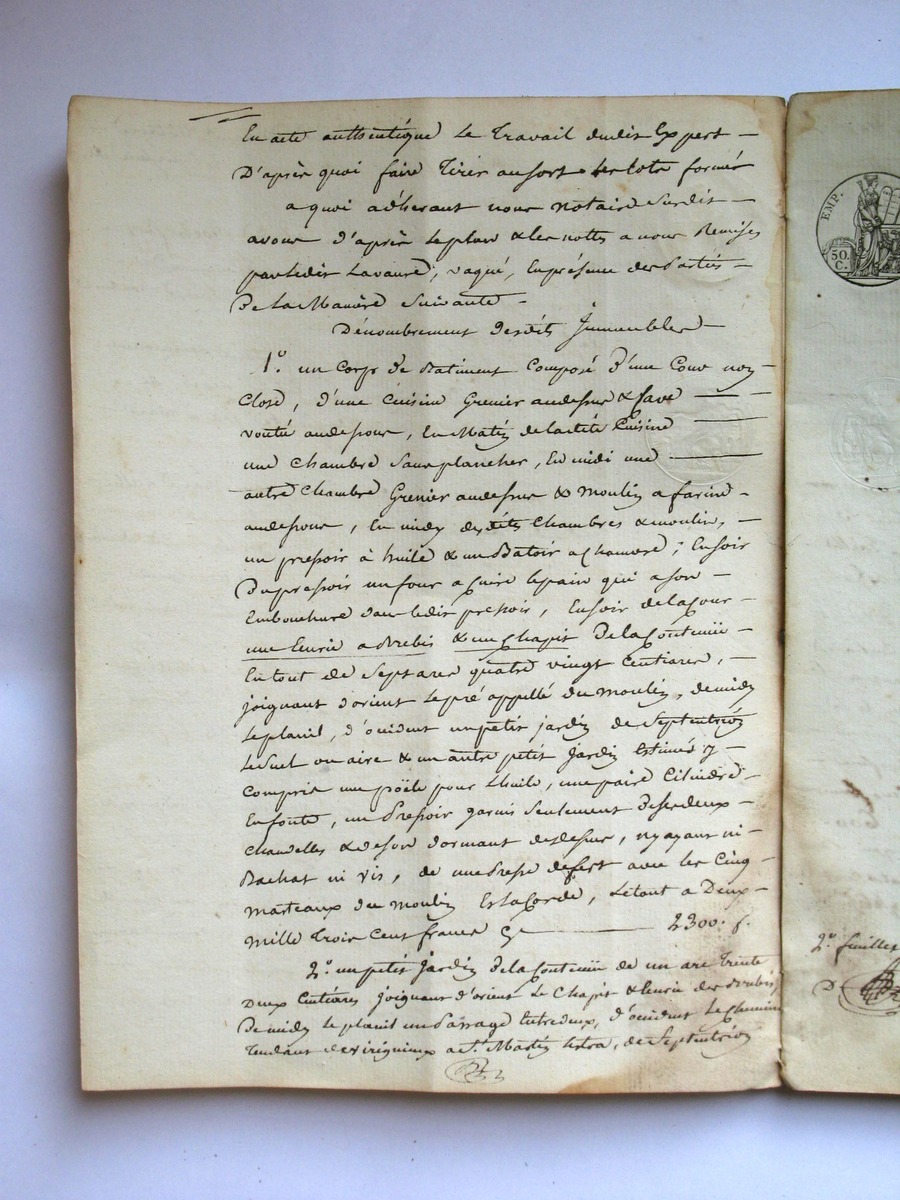 En acte authentique Le Travail dudit Expert —
D'après quoi faire Tirer au sort les lots formés
a quoi adhérant nous notaire Susdit —
avons d'après le plan & les nottes a nous Remises
par ledit Lavaure, vaqué, En présence des Parties —
De La Manière Suivante —
Dénombrement desdits Immeubles —
1º. un Corps de Batiment Composé d'une Cour non
Close, d'une Cuisine Grenier audessus & Cave —
vouté audessous, En Matin de ladite Cuisine
une Chambre Sans plancher, En midi une —
autre Chambre Grenier audessus & Moulin a farine —
audessous, En midy desdites Chambres & moulin, —
un pressoir à huile & un Batoir a Chanvre; En soir
Du pressoir un four a Cuire le pain qui a son —
Embouchure dans ledit pressoir, En soir de la Cour —
une Ecurie a Brebis & un Chapit De la Contenue —
En tout de Sept ares quatre vingt Centiares, —
joignant d'orient le pré appellé du moulin, de midy
le planil, d'occident un petit jardin de Septentrion
Le Suel ou aire & un autre petit Jardin Estimé y —
Compris une poële pour L'huile, une paire Cilindre —
En fonte, un Pressoir garni Seulement De ses deux —
Chandelles & de son dormant de dessus, n'y ayant ni —
Bachat ni vis, de une Presse de fert avec les Cinq —
marteaux du moulin Et la Corde, Le tout a Deux —
Mille Trois Cent francs Cy — 2300. f.
2º. un petit Jardin De la Contenue de un are Trente
Deux Centiares joignant d'orient Le Chapit & Ecurie des Brebis,
De midy le planil un Passage Entre deux, d'occident Le Chemin
Tendant de Virignieux a St. Martin Lestra, de Septentrion
EMP.
50.
C.
2e. feuillet